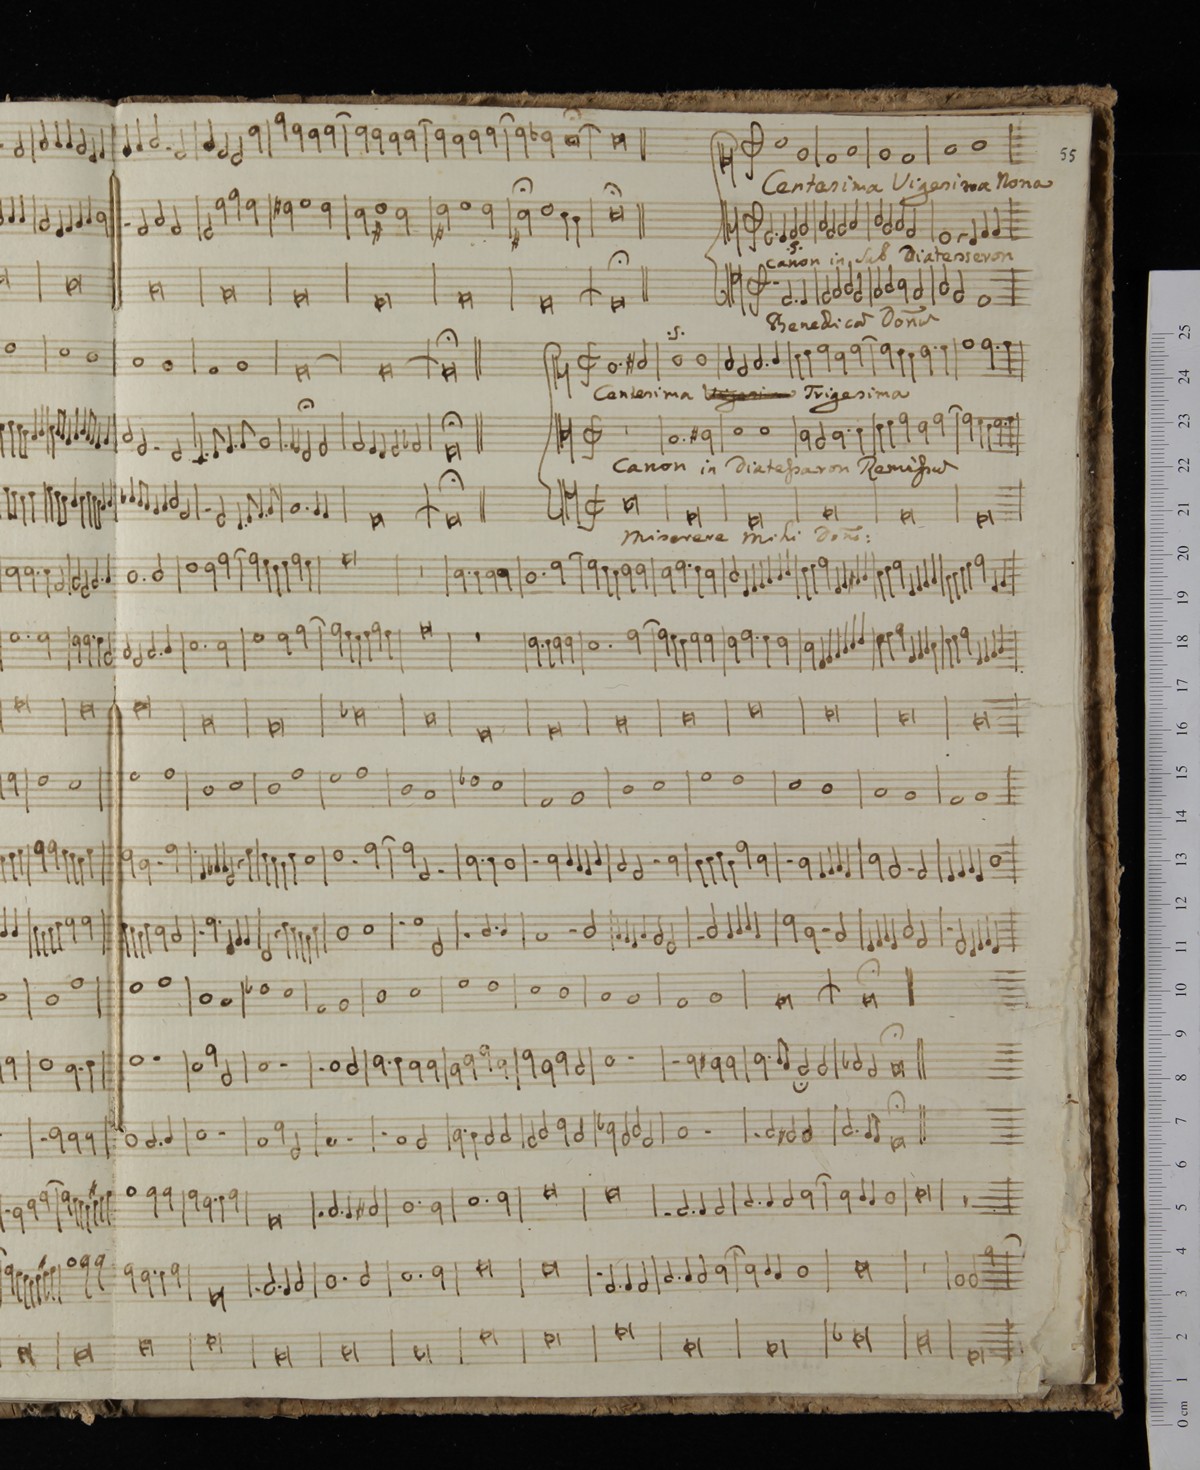 55
Centesima Vigesima Nona
.S.
Canon in Sub Diatesseron
Benedicat Doñus
.S.
Centesima Vigesima Trigesima
Canon in Diatessaron
Miserere Mihi Doñe:
25
24
23
22
21
20
19
18
17
16
15
14
13
12
11
10
9
8
7
6
5
4
3
2
1
0 cm